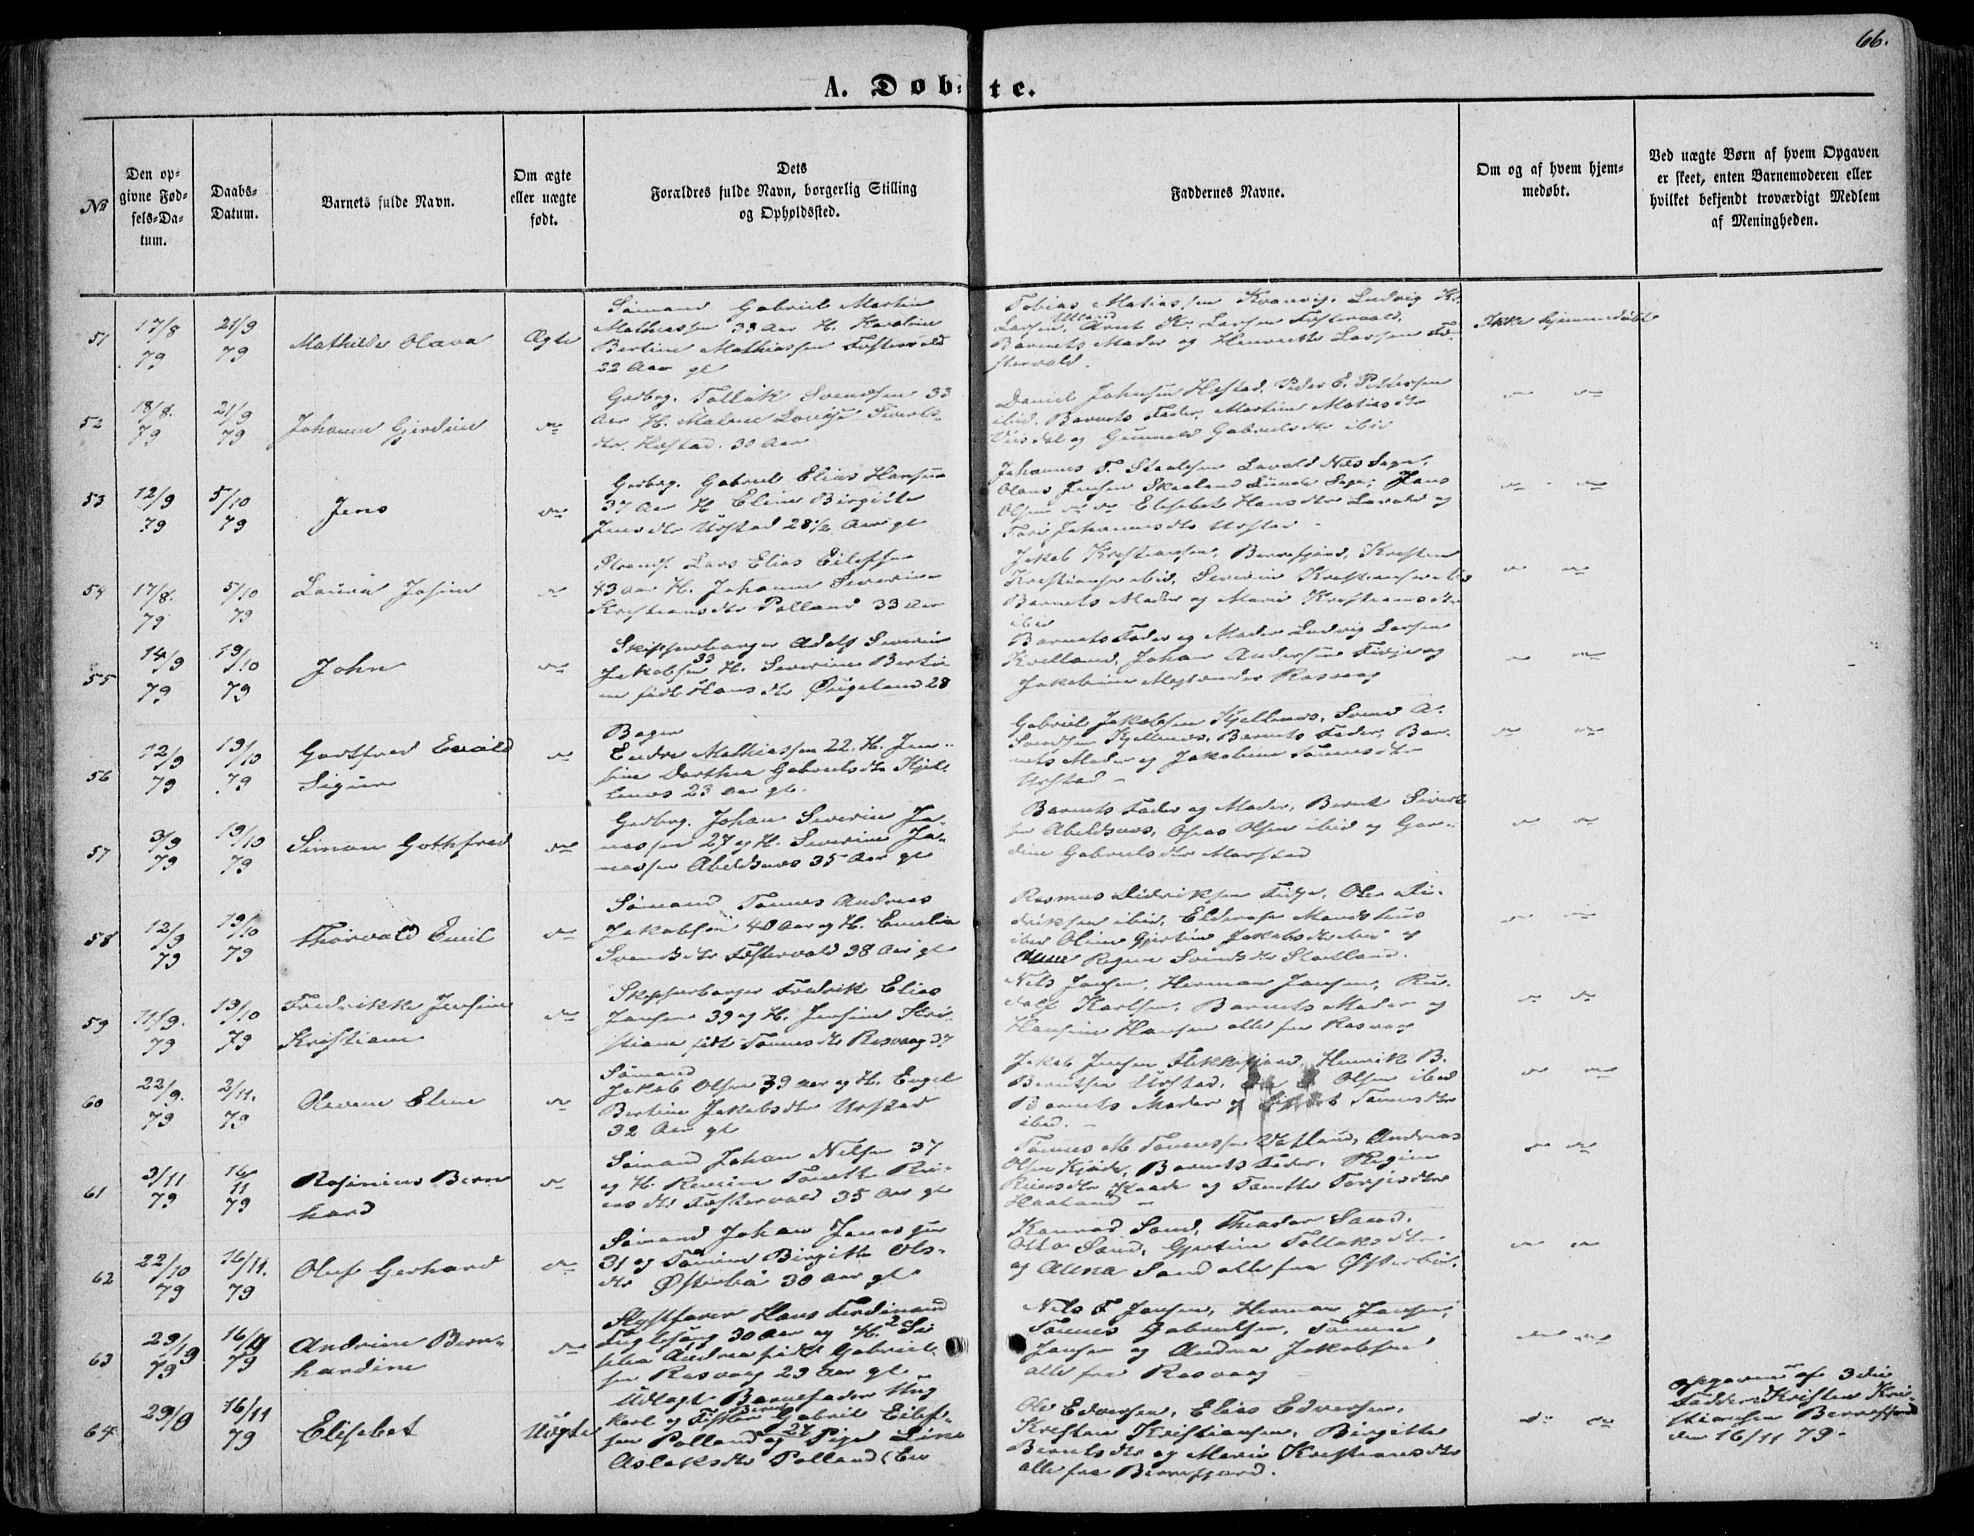 66.
A. Døbte.
No
Den opgivne Fødsels-Datum.
Daabs-Datum.
Barnets fulde Navn.
Om ægte eller uægte født.
Dets Forældres fulde Navn, borgerlig Stilling og Opholdssted.
Faddernes Navne.
Om og af hvem hjemmedøbt.
Ved uægte Børn af hvem Opgaven er skeet, enten Barnemoderen eller hvilket bekjendt troværdigt Medlem af Meningheden.
51
17/8 79
21/9 79
Mathilde Olava
Ægte
Sømand Gabriel Martin
Mathiassen 33 Aar H. Karoline
Bertine Mathiassen
22 Aar gl
Tobias Matiassen Ludvig
Larsen, K. Larsen
Barnets Moder og Henriette Larsen
Ikke hjemmedøbt
52
18/8. 79
21/9 79
Johanne Gjerdine
do
Gaabrg. Tollak Svendsen 33
Aar H. Malene Lovise Siverts-
dtr. Hæstad. 30 Aar
Daniel Johnsen Hæstad. Peder E. Pettersen
ibid. Barnets Fader, Martine Matiasdtr
og Gunneld Gabrielsdtr ibid
53
12/9 79
5/10 79
Jens
do
Gaabrg. Gabriel Elias Hansen
37 Aar H Eline Birgitte
Jensdtr Urstad 28½ Aar gl
Johannes T.
Olaus Jensen Skaaland
Olsen do do Elisebet Hansdtr og
Johannesdtr Urstad
54
17/8. 79
5/10 79
Laura Josine
do
Lars Elias Eilefsen
43 aar H. Johanne Severine
Kristiansdtr Polland 33 Aar
Jakob Kristiansen, Berrefjord, Kristen
Kristiansen ibid, Severin Kristiansen ibid
Barnets Moder og Marie Kristiansdtr
ibid
55
14/9 79
19/10 79
John
do
Skipperborger Adolf Severin
Jakobsen 33 H. Severine Bertine
født Hansdtr Øigeland 28
Barnets Fader og Moder Ludvig Larsen
Kvelland, Johan Andersen og
Jakobine Rasvaag
56
12/9 79
19/10 79
Gottfred Evald
Sigurd
do
Bager
Endre Mathiassen 22. H. Jen-
sine Dorthea Gabrielsdtr Kjel-
lenes 23 aar gl.
Gabriel Jakobsen Kjellenes, Svend A.
Svendsen Kjellenes, Barnets Fader, Bar-
nets Moder og Jakobine Tønnesdtr
Urstad
57
3/9 79
19/10 79
Simon Gothfred
do
Gaabrg. Johan Severin Jo-
nassen 27 og H. Severine Jo-
nassen Abelsnes 35 Aar gl
Barnets Fader og Moder, Bernt Sivert-
sen Abelsnes, Olsen ibid og
Gabrielsdtr
58
12/9 79
19/10 79
Thorvald Emil
do
Sømand Tønnes Andreas
Jakobsen 40 Aar og H. Emelie
Svendsdtr 38 Aar gl
Rasmus Didriksen Ole Di-
driksen ibid,
ibid Oline Gjertine Jakobsdtr ibid og
Anne Regine Svendsdtr
59
11/9. 79
19/10 79
Fredrikke Jensine
Kristiane
do
Skipperborger Fredrik Elias
Jansen 39 og H. Jensine Kri-
stiane født Tønnesdtr Rasvaag 37
Nils Jansen, Herman Jansen, Ru-
dolf Karlsen, Barnets Moder og
Hansine Hansen alle fra Rasvaag
60
22/9. 79
2/11. 79
Olevine Eline
do
Sømand
Jakob Olsen 39 aar og H. Engel
Bertine Jakobsdtr Urstad
32 Aar gl
Jakob Jensen Flekkefjord, Henrik B.
Berntsen Urstad, Olsen ibid
Barnets Moder og Tønnesdtr
ibid.
61
3/11 79
16/11 79
Rasinius Bern
hard
do
Sømand Johan Nilsen 37
og H. Reinine Tonette Rei-
nesdtr 35 Aar gl
Tønnes M Tønnessen Andreas
Olsen Barnets Fader, Regine
og Tonette
Haaland
62
22/10 79
16/11. 79
Oluf Gerhard
do
Sømand Johan Janassen
31 og Tomine Birgitte Ols-
dtr Østerbø 30 aar gl
Konrad Sand, Theodor Sand,
Otto Sand, Gjertine Tollaksdtr
og Anna Sand alle fra Østerbø.
63
29/9 79
16/11 79
Andrine Bern-
hardine
do
Hans Ferdinand
30 Aar og H.
Andrea født Gabriel-
sen Rasvaag 29 Aar gl
Nils F Jansen, Herman Jansen,
Tønnes Gabrielsen, Tomine
Jansen og Andrea Jakobsen
alle fra Rasvaag
64
29/9
16/11 79
Elisebet
Uægte
Udlagt Barnefader Ung
karl og Fisker Bernt Gabriel Eilef-
sen Polland 27 og Pige Line
Aslaksdtr Polland (Ev
Ole Edversen, Elias Edversen,
Kristen Kristiansen, Birgitte
Berntsdtr og Marie Kristiansdtr
alle fra Berrefjord.
opgaven af 3die
Fadder Kristen Kri-
stiansen Berrefjord
den 16/11 79.